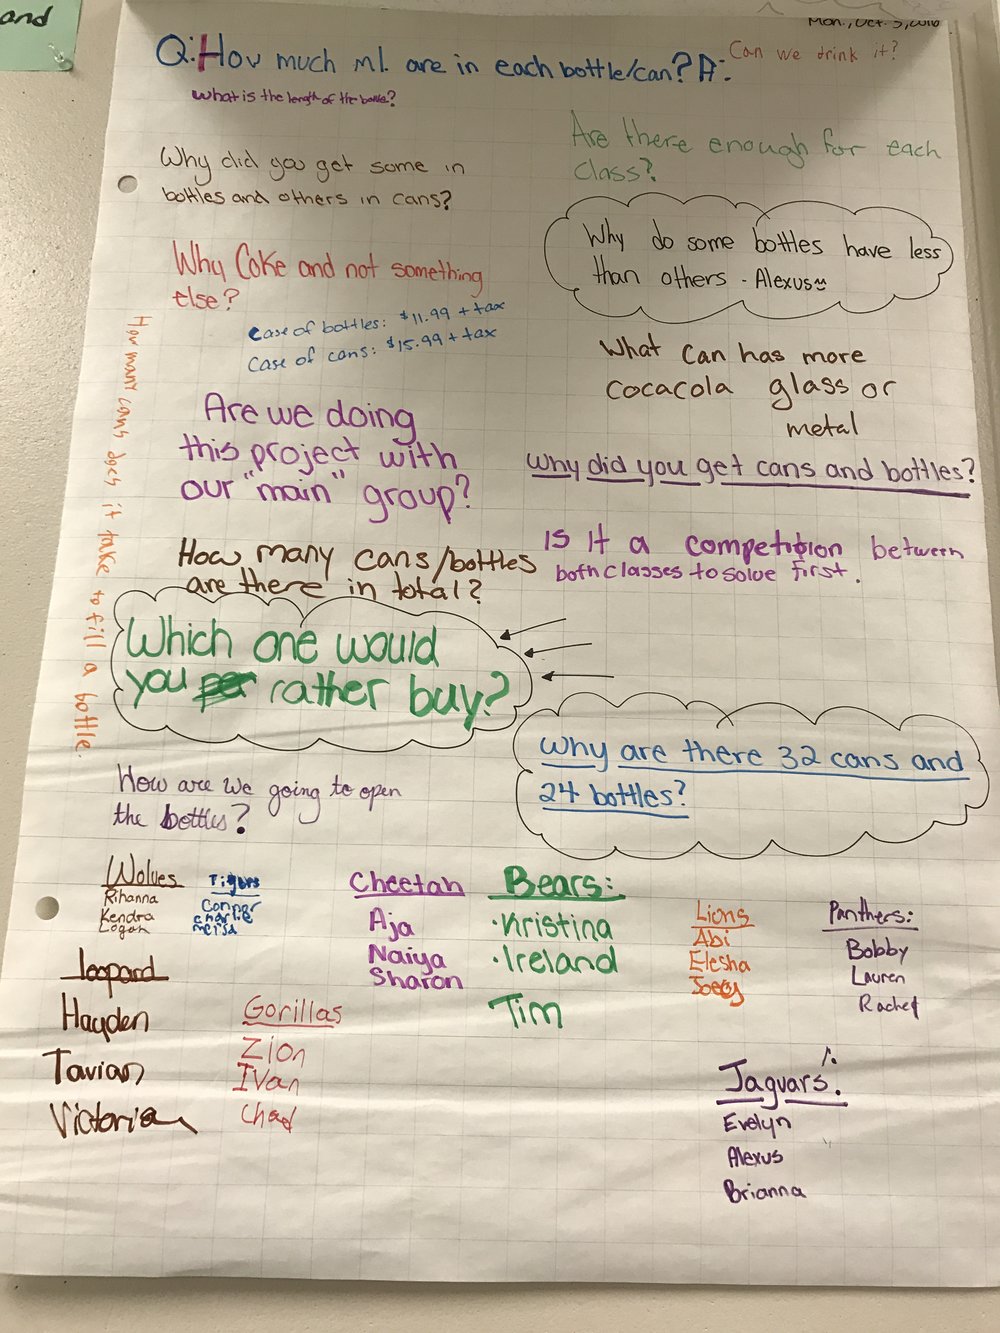 and
Mon., Oct. 3, 2016
Q: How much ml. are in each bottle/can? A:
Can we drink it?
What is the length of the bottle?
Are there enough for each
class?
Why did you get some in
bottles and others in cans?
Why do some bottles have less
than others - Alexus
Why Coke and not something
else?
Case of bottles: $11.99 + tax
Case of cans: $15.99 + tax
How many cans does it take to fill a bottle.
What can has more
cocacola glass or
metal
Are we doing
this project with
our "main" group?
Why did you get cans and bottles?
Is it a competition between
both classes to solve first.
How many cans/bottles
are there in total?
Which one would
you rather buy?
Why are there 32 cans and
24 bottles?
How are we going to open
the bottles?
Wolves
Rihanna
Kendra
Logan
Tigers
Conner
Charlie
Cheetah
Aja
Naiya
Sharon
Bears:
·Kristina
·Ireland
Tim
Lions
Abi
Elesha
Panthers:
Bobby
Lauren
Rachel
leopard
Hayden
Tavian
Victoria
Gorillas
Zion
Ivan
Chad
Jaguars:
Evelyn
Alexus
Brianna